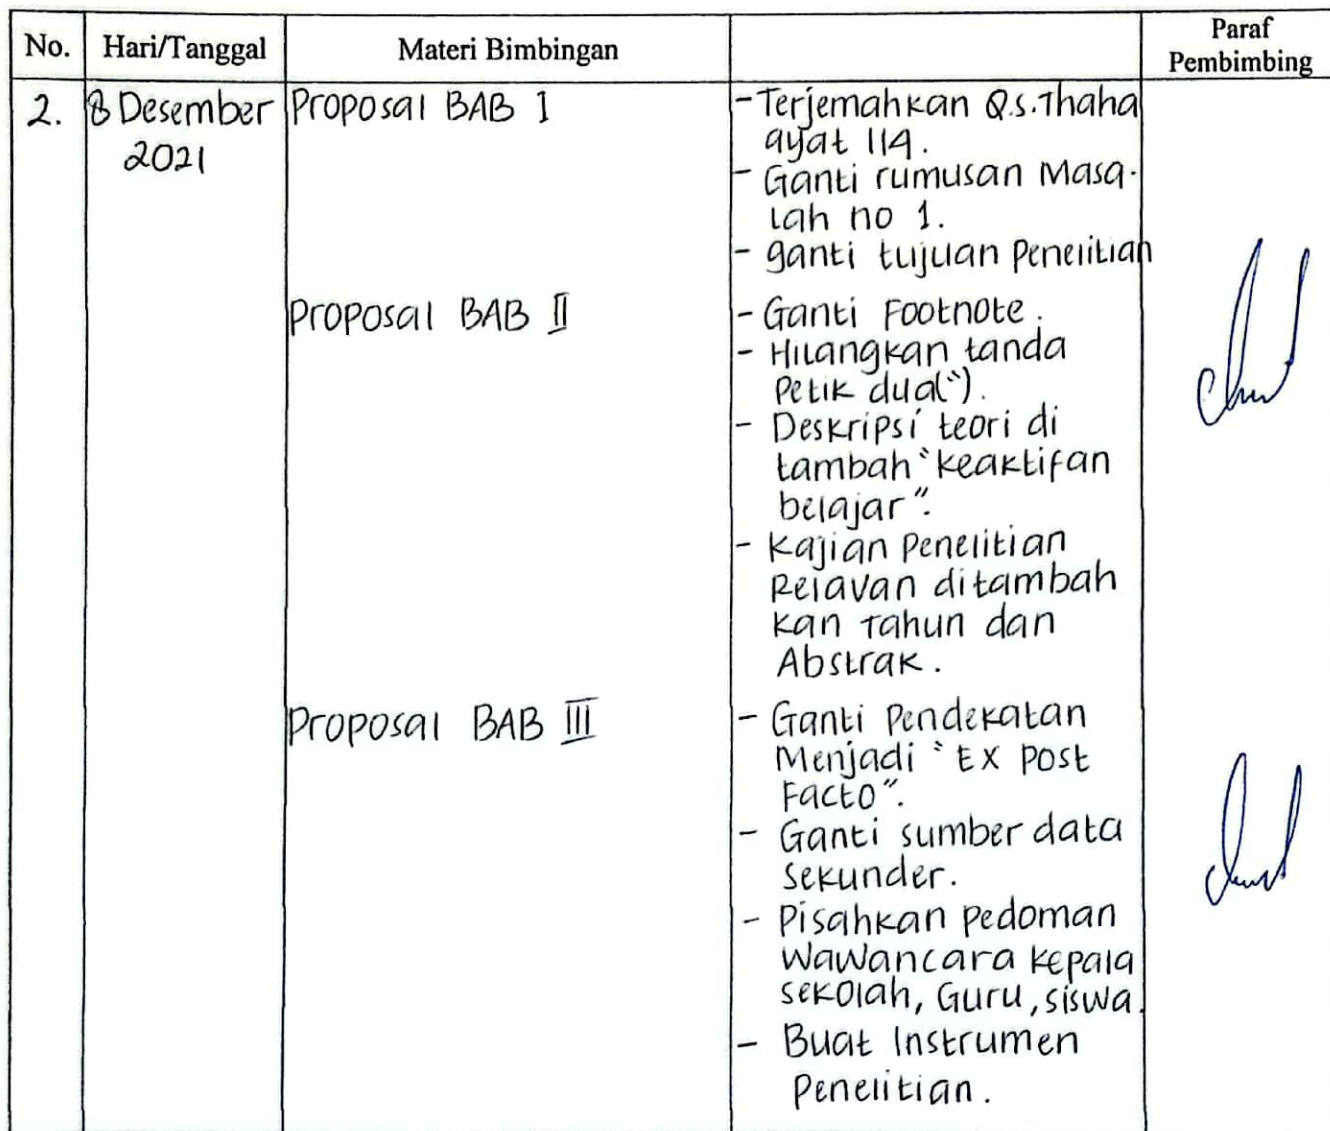 No. Hari/Tanggal Materi Bimbingan Paraf
Pembimbing
2. 8 Desember 2021 Proposal BAB I
- Terjemahkan Q.s. Thaha
ayat 114.
- Ganti rumusan Masa-
lah no 1.
- ganti tujuan Penelitian
Proposal BAB II
- Ganti Footnote.
- Hilangkan tanda
Petik dua(").
- Deskripsi teori di
tambah "keaktifan
belajar".
- Kajian Penelitian
Relavan ditambah
kan Tahun dan
Abstrak.
Proposal BAB III
- Ganti Pendekatan
Menjadi "Ex Post
Facto".
- Ganti sumber data
Sekunder.
- Pisahkan pedoman
Wawancara kepala
sekolah, Guru, siswa.
- Buat Instrumen
Penelitian.